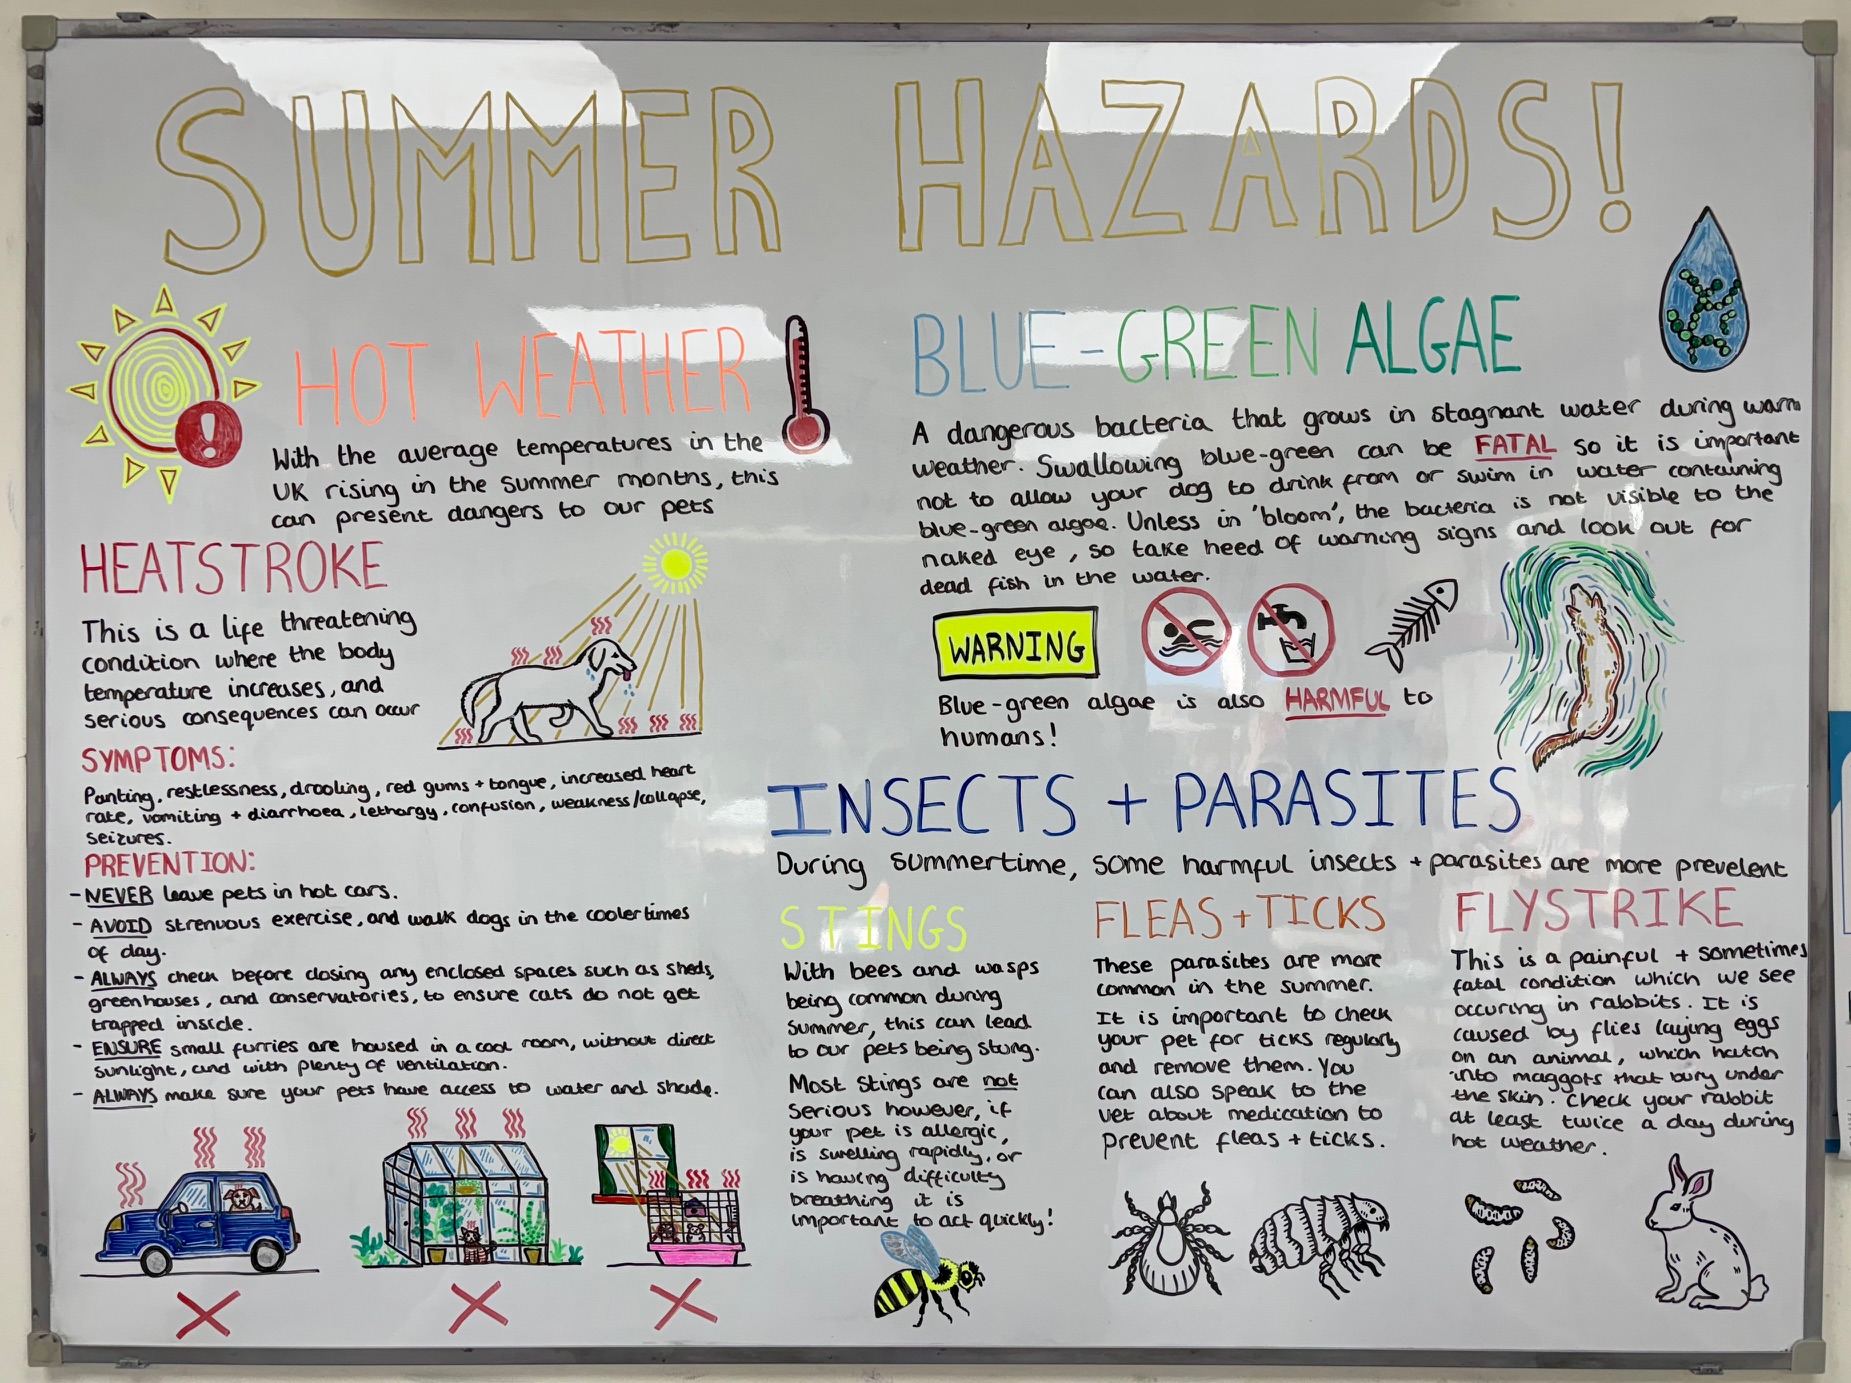 SUMMER HAZARDS!
HOT WEATHER
With the average temperatures in the
UK rising in the summer months, this
can present dangers to our pets
HEATSTROKE
This is a life threatening
condition where the body
temperature increases, and
serious consequences can occur
SYMPTOMS:
Panting, restlessness, drooling, red gums + tongue, increased heart
rate, vomiting + diarrhoea, lethargy, confusion, weakness/collapse,
seizures.
PREVENTION:
- NEVER leave pets in hot cars.
- AVOID strenuous exercise, and walk dogs in the cooler times
of day.
- ALWAYS check before closing any enclosed spaces such as sheds,
greenhouses, and conservatories, to ensure cats do not get
trapped inside.
- ENSURE small furries are housed in a cool room, without direct
sunlight, and with plenty of ventilation.
- ALWAYS make sure your pets have access to water and shade.
BLUE-GREEN ALGAE
A dangerous bacteria that grows in stagnant water during warm
weather. Swallowing blue-green can be FATAL so it is important
not to allow your dog to drink from or swim in water containing
blue-green algae. Unless in 'bloom', the bacteria is not visible to the
naked eye, so take heed of warning signs and look out for
dead fish in the water.
WARNING
Blue-green algae is also HARMFUL to
humans!
INSECTS + PARASITES
During summertime, some harmful insects + parasites are more prevelent
STINGS
With bees and wasps
being common during
summer, this can lead
to our pets being stung.
Most stings are not
serious however, if
your pet is allergic,
is swelling rapidly, or
is having difficulty
breathing it is
important to act quickly!
FLEAS + TICKS
These parasites are more
common in the summer.
It is important to check
your pet for ticks regularly
and remove them. You
can also speak to the
vet about medication to
prevent fleas + ticks.
FLYSTRIKE
This is a painful + sometimes
fatal condition which we see
occuring in rabbits. It is
caused by flies laying eggs
on an animal, which hatch
into maggots that bury under
the skin. Check your rabbit
at least twice a day during
hot weather.